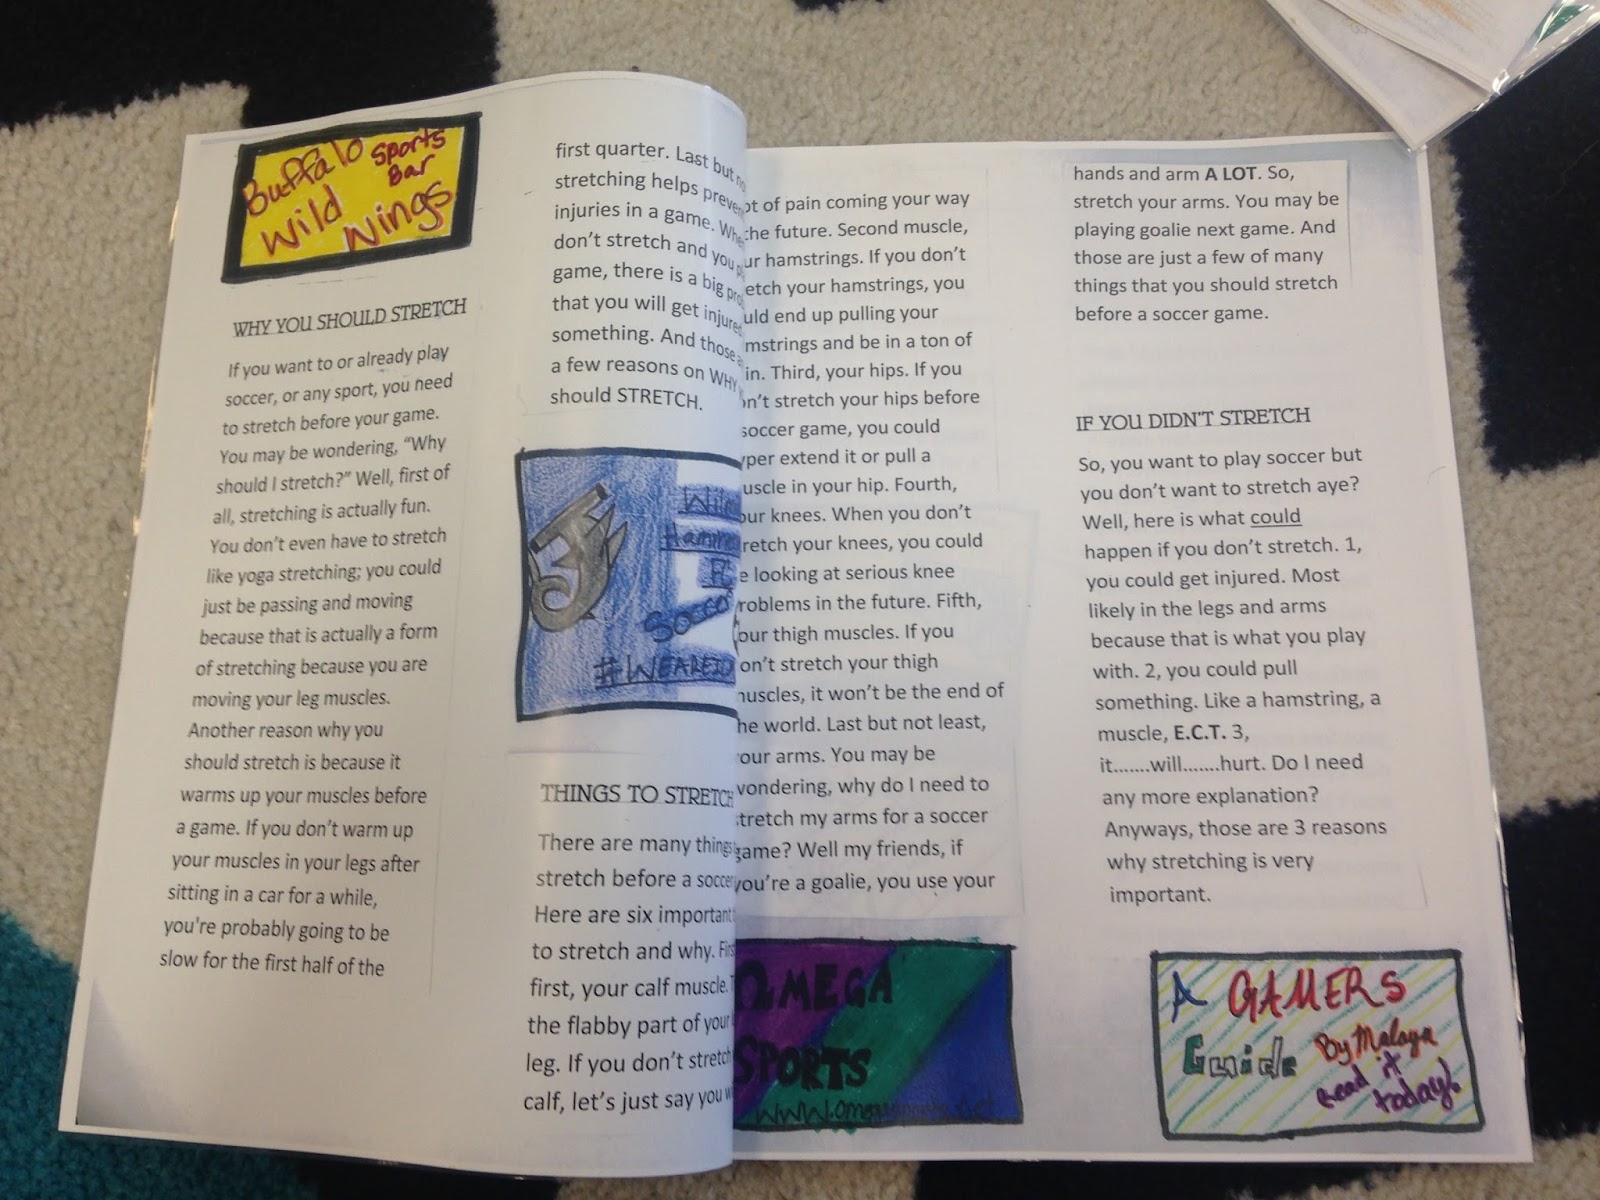 Buffalo
Wild
Wings
Sports
Bar
WHY YOU SHOULD STRETCH
If you want to or already play
soccer, or any sport, you need
to stretch before your game.
You may be wondering, “Why
should I stretch?” Well, first of
all, stretching is actually fun.
You don’t even have to stretch
like yoga stretching; you could
just be passing and moving
because that is actually a form
of stretching because you are
moving your leg muscles.
Another reason why you
should stretch is because it
warms up your muscles before
a game. If you don’t warm up
your muscles in your legs after
sitting in a car for a while,
you're probably going to be
slow for the first half of the
first quarter. Last but
stretching helps
injuries in a game.
don’t stretch and you
game, there is a big
that you will get
something. And those
a few reasons on WHY
should STRETCH.
Soccer
THINGS TO STRETCH
There are many things
stretch before a soccer
Here are six important
to stretch and why.
first, your calf muscle.
the flabby part of your
leg. If you don’t stretch
calf, let’s just say you
of pain coming your way
the future. Second muscle,
hamstrings. If you don’t
your hamstrings, you
end up pulling your
and be in a ton of
Third, your hips. If you
stretch your hips before
soccer game, you could
extend it or pull a
in your hip. Fourth,
knees. When you don’t
your knees, you could
looking at serious knee
in the future. Fifth,
thigh muscles. If you
stretch your thigh
it won’t be the end of
world. Last but not least,
arms. You may be
wondering, why do I need to
stretch my arms for a soccer
game? Well my friends, if
you’re a goalie, you use your
OMEGA
SPORTS
hands and arm A LOT. So,
stretch your arms. You may be
playing goalie next game. And
those are just a few of many
things that you should stretch
before a soccer game.
IF YOU DIDN'T STRETCH
So, you want to play soccer but
you don’t want to stretch aye?
Well, here is what could
happen if you don’t stretch. 1,
you could get injured. Most
likely in the legs and arms
because that is what you play
with. 2, you could pull
something. Like a hamstring, a
muscle, E.C.T. 3,
it.......will.......hurt. Do I need
any more explanation?
Anyways, those are 3 reasons
why stretching is very
important.
A GAMERS
Guide By Malaya
Read it
today!